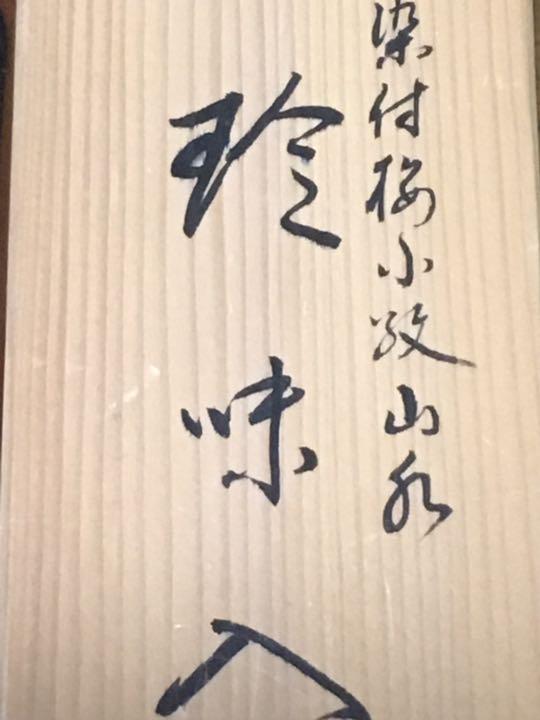 染付梅小紋山水
珍味入